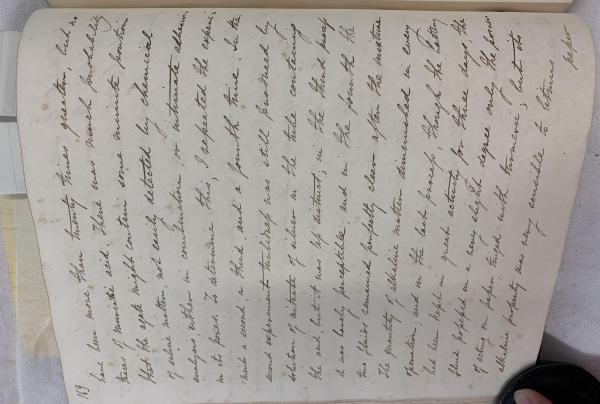 169
have been more than twenty times greater, and no
traces of muriatic acid. There was much probability
that the agate might contain some minute portion
of saline matter, not easily detected by chemical
analysis, either in combination or intimate adhesion
in its pores. To determine this, I repeated the experi-
ment a second, a third, and a fourth time. In the
second experiment turbidness was still produced by
solution of nitrate of silver in the tube containing
the acid, but it was less distinct; in the third process
it was barely perceptible; and in the fourth the
two fluids remained perfectly clear after the mixture.
The quantity of alkaline matter diminished in every
operation; and in the last process, though the battery
had been kept in great activity for three days, the
fluid possessed in a very slight degree only the power
of acting on paper tinged with turmeric; but its
alkaline property was very sensible to litmus
paper